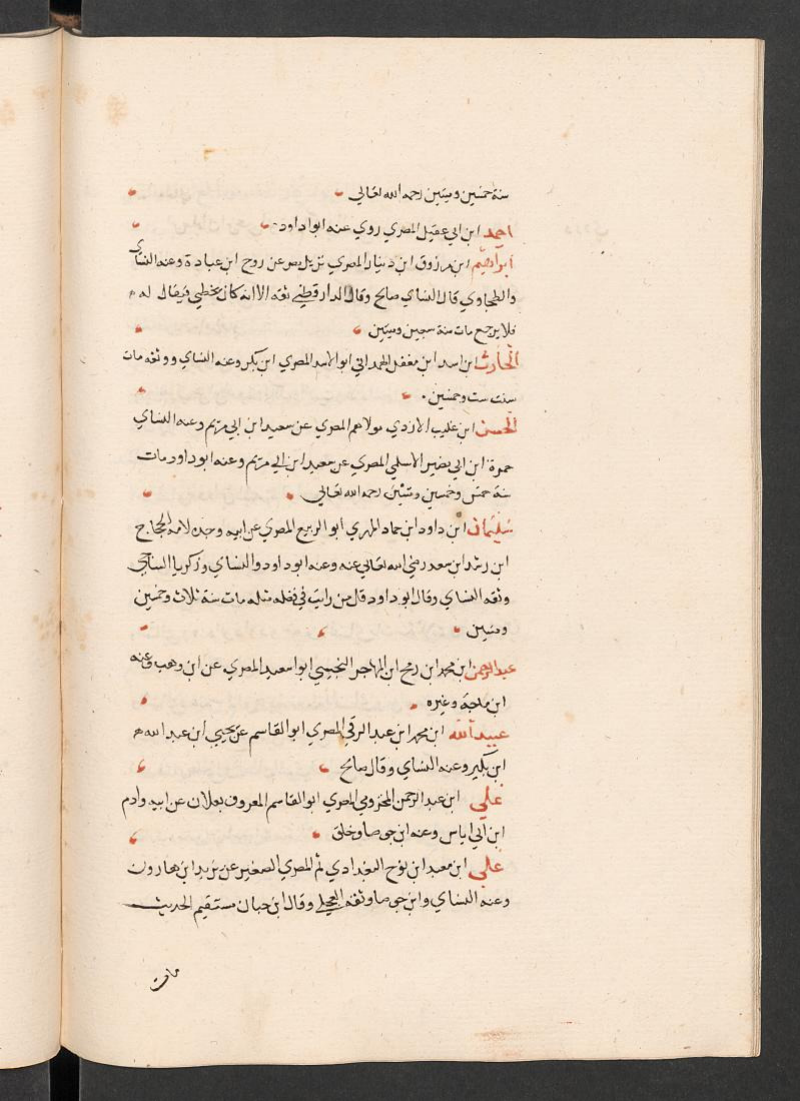 سنة خمسين وميتين رحمه الله تعالى
احمد ابن ابي عقيل المصري روي عنه ابوا داود
ابراهيم ابن مرزوق ابن دينار المصري نزيل مصر عن روح ابن عبادة وعنه النساي
والطحاوي قال النساي صالح وقال الدارقطني ثقه الا انه كان يخطي فيقال له
فلا يرجع مات سنة سبعين وميتين
الحارث ابن اسد ابن معقل الهمداني ابو الاسد المصري ابن بكر وعنه النساي ووثقه مات
سنت ست وخمسين
الحسن ابن غليب الازدي مولاهم المصري عن سعيد ابن ابي مريم وعنه النساي
حمزة ابن ابي نصير الاسلمي المصري عن سعيد ابن ابي مريم وعنه ابو داود مات
سنة خمس وخمسين وميتين رحمه الله تعالى
سليمان ابن داود ابن حماد المهري ابو الربيع المصري عن ابيه وجده لامه الحجاج
ابن رشد ابن سعد رضي الله تعالى عنه وعنه ابو داود والنساي وزكريا الساجي
وثقه النساي وقال ابو داود قل من رايت في فضله مثله مات سنة ثلاث وخمسين
وميتين
عبد الرحمن ابن محمد ابن رمح ابن المهاجر التجيبي ابوا سعيد المصري عن ابن وهب وعنه
ابن ماجة وغيره
عبيد الله ابن محمد ابن عبد الرقي المصري ابو القاسم عن يحيى ابن عبد الله
ابن بكير وعنه النساي وقال صالح
علي ابن عبد الرحمن المخزومي المصري ابو القاسم المعروف بعلان عن ابيه وادم
ابن ابي اياس وعنه ابن جوصا وخلق
علي ابن معبد ابن نوح البغدادي ثم المصري الصغير عن يزيد ابن هارون
وعنه النساي وابن جوصا وثقه العجلي وقال ابن حبان مستقيم الحديث
مات